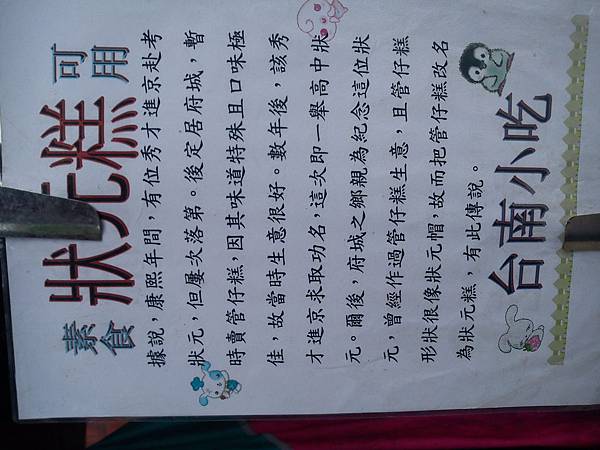 素食 狀元糕 可用
據說，康熙年間，有位秀才進京赴考
狀元，但屢次落第。後定居府城，暫
時賣管仔糕，因其味道特殊且口味極
佳，故當時生意很好。數年後，該秀
才進京求取功名，這次即一舉高中狀
元。爾後，府城之鄉親為紀念這位狀
元，曾經作過管仔糕生意，且管仔糕
形狀很像狀元帽，故而把管仔糕改名
為狀元糕，有此傳說。
台南小吃